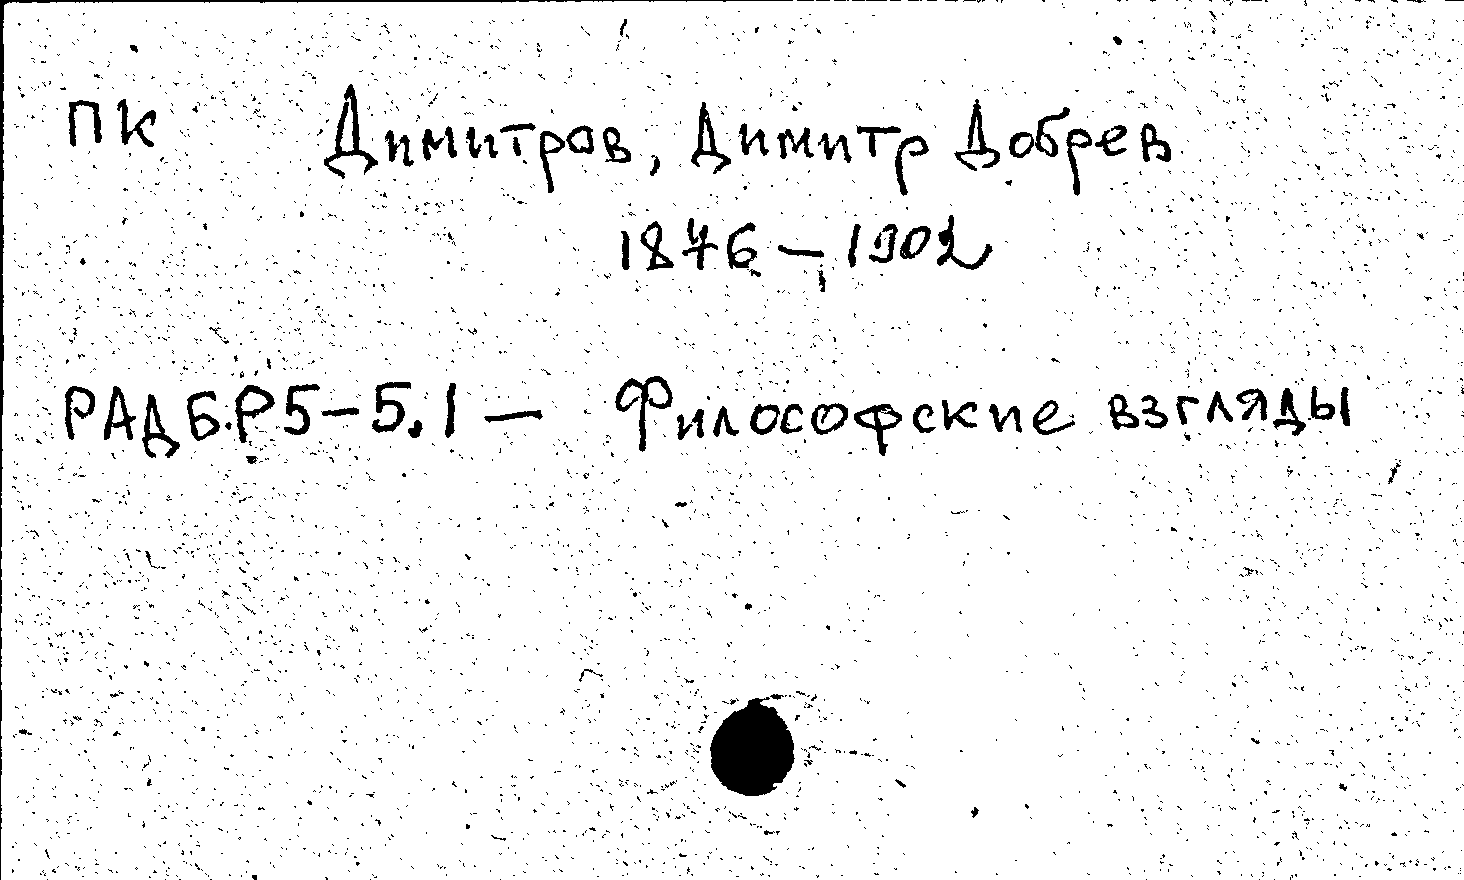 ПК Димитров, Димитр Добрев
1876 – 1902
РАДБ.Р5-5.1 – Философские взгляды